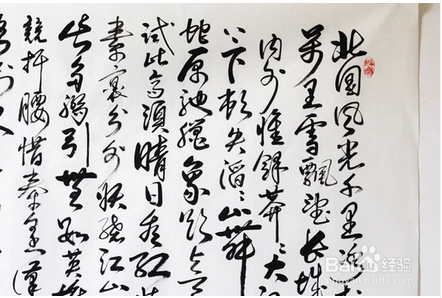 北国风光千里
万里雪飘望长城
内外惟餘莽〻大
上下顿失滔〻山舞
蛇原驰蜡象欲与
试比高須晴日看红
素裹分外妖娆江山
此多娇引無数英
競折腰惜秦皇漢
Baidu经验
jingyan.baidu.com